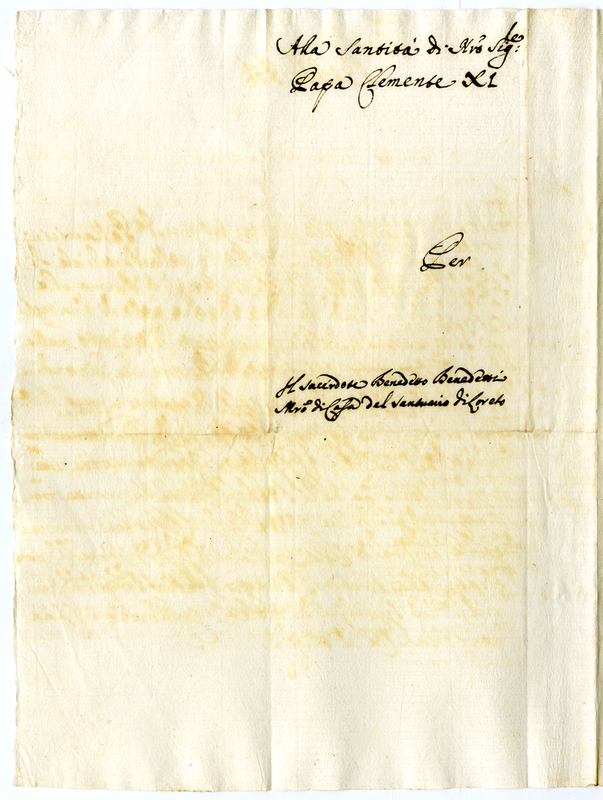 Alla Santità di Nro Sigre:
Papa Clemente XI
Per
Il Sacerdote Benedetto Benedetti
Mro di Casa del Santuario di Loreto